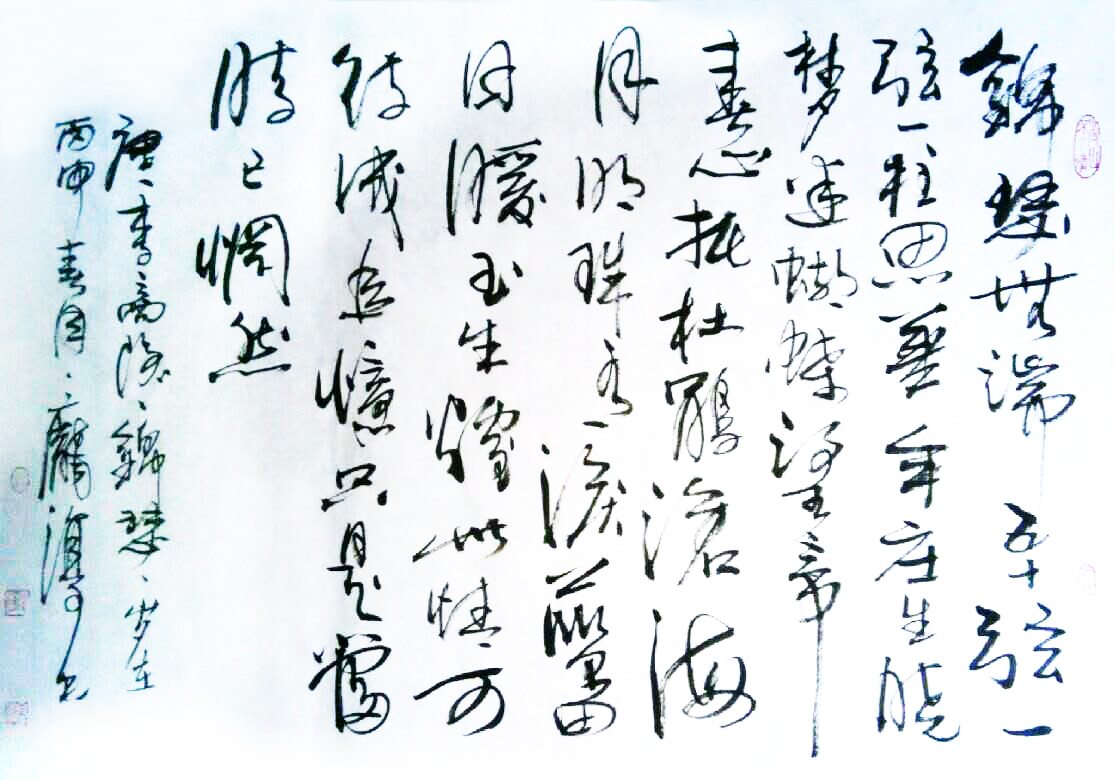 錦瑟無端五十弦一
弦一柱思華年庄生曉
梦迷蝴蝶望帝
春心托杜鵑滄海
月明珠有淚藍田
日暖玉生煙此情可
待成追憶只是當
時已惘然
唐李商隐錦瑟岁在
丙申春月书